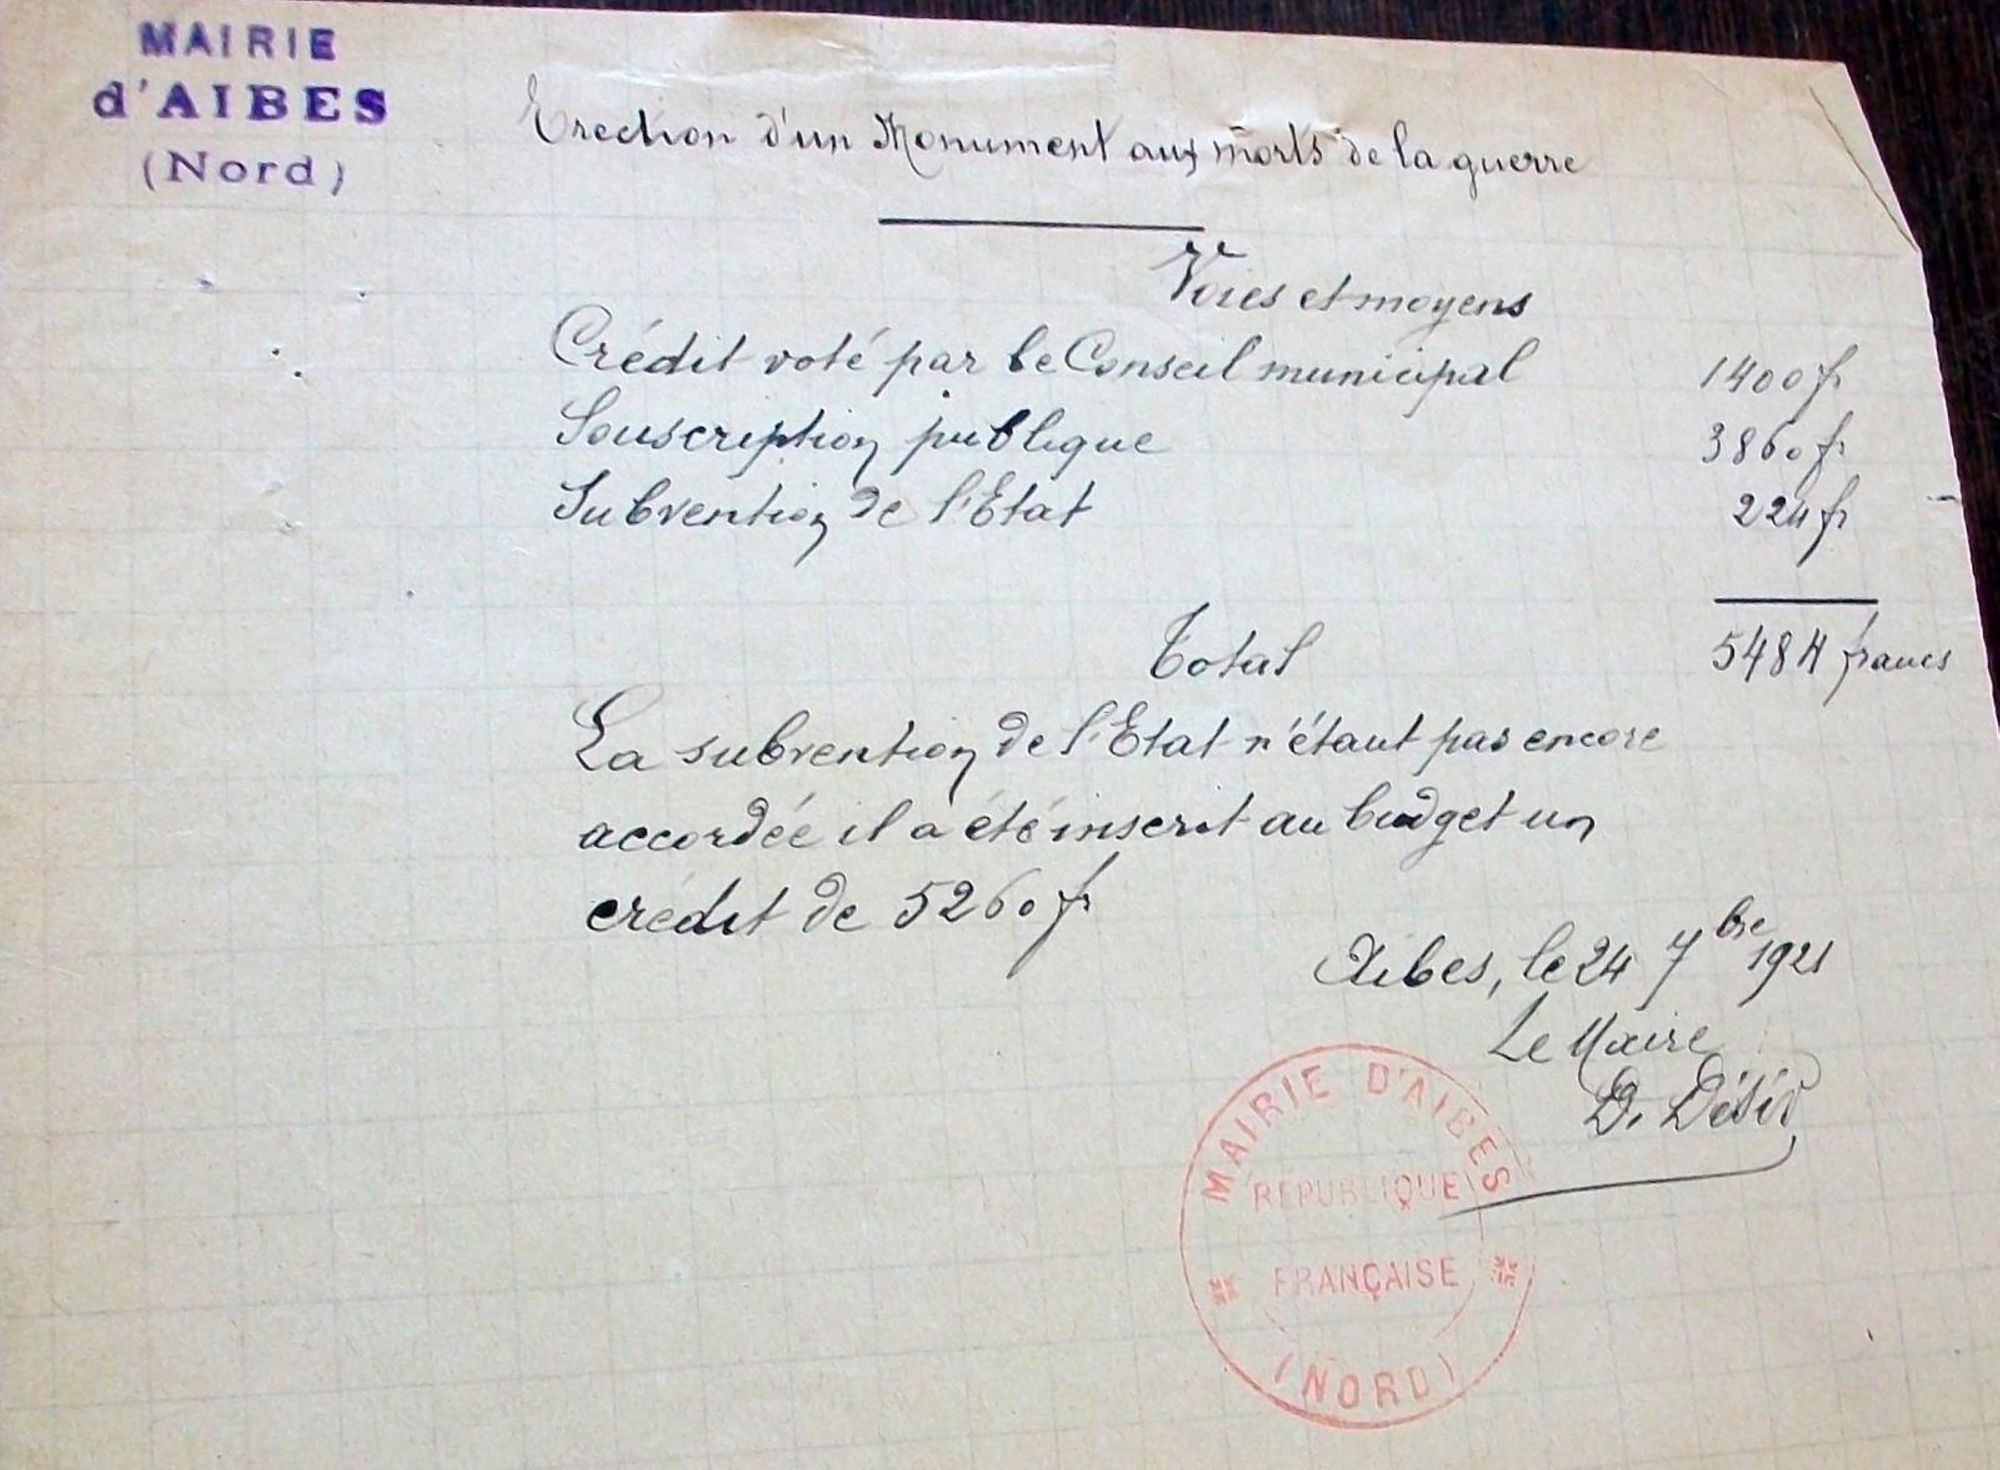 MAIRIE
d'AIBES
(Nord)
Erection d'un Monument aux morts de la guerre
Voies et moyens
Crédit voté par le Conseil municipal 1400 fr
Souscription publique 3860 fr
Subvention de l'Etat 224 fr
Total 5484 francs
La subvention de l'Etat n'étant pas encore
accordée il a été inscrit au budget un
crédit de 5260 fr
Aibes, le 24 7bre 1921
Le Maire
D. Désir
MAIRIE D'AIBES
REPUBLIQUE
FRANÇAISE
(NORD)